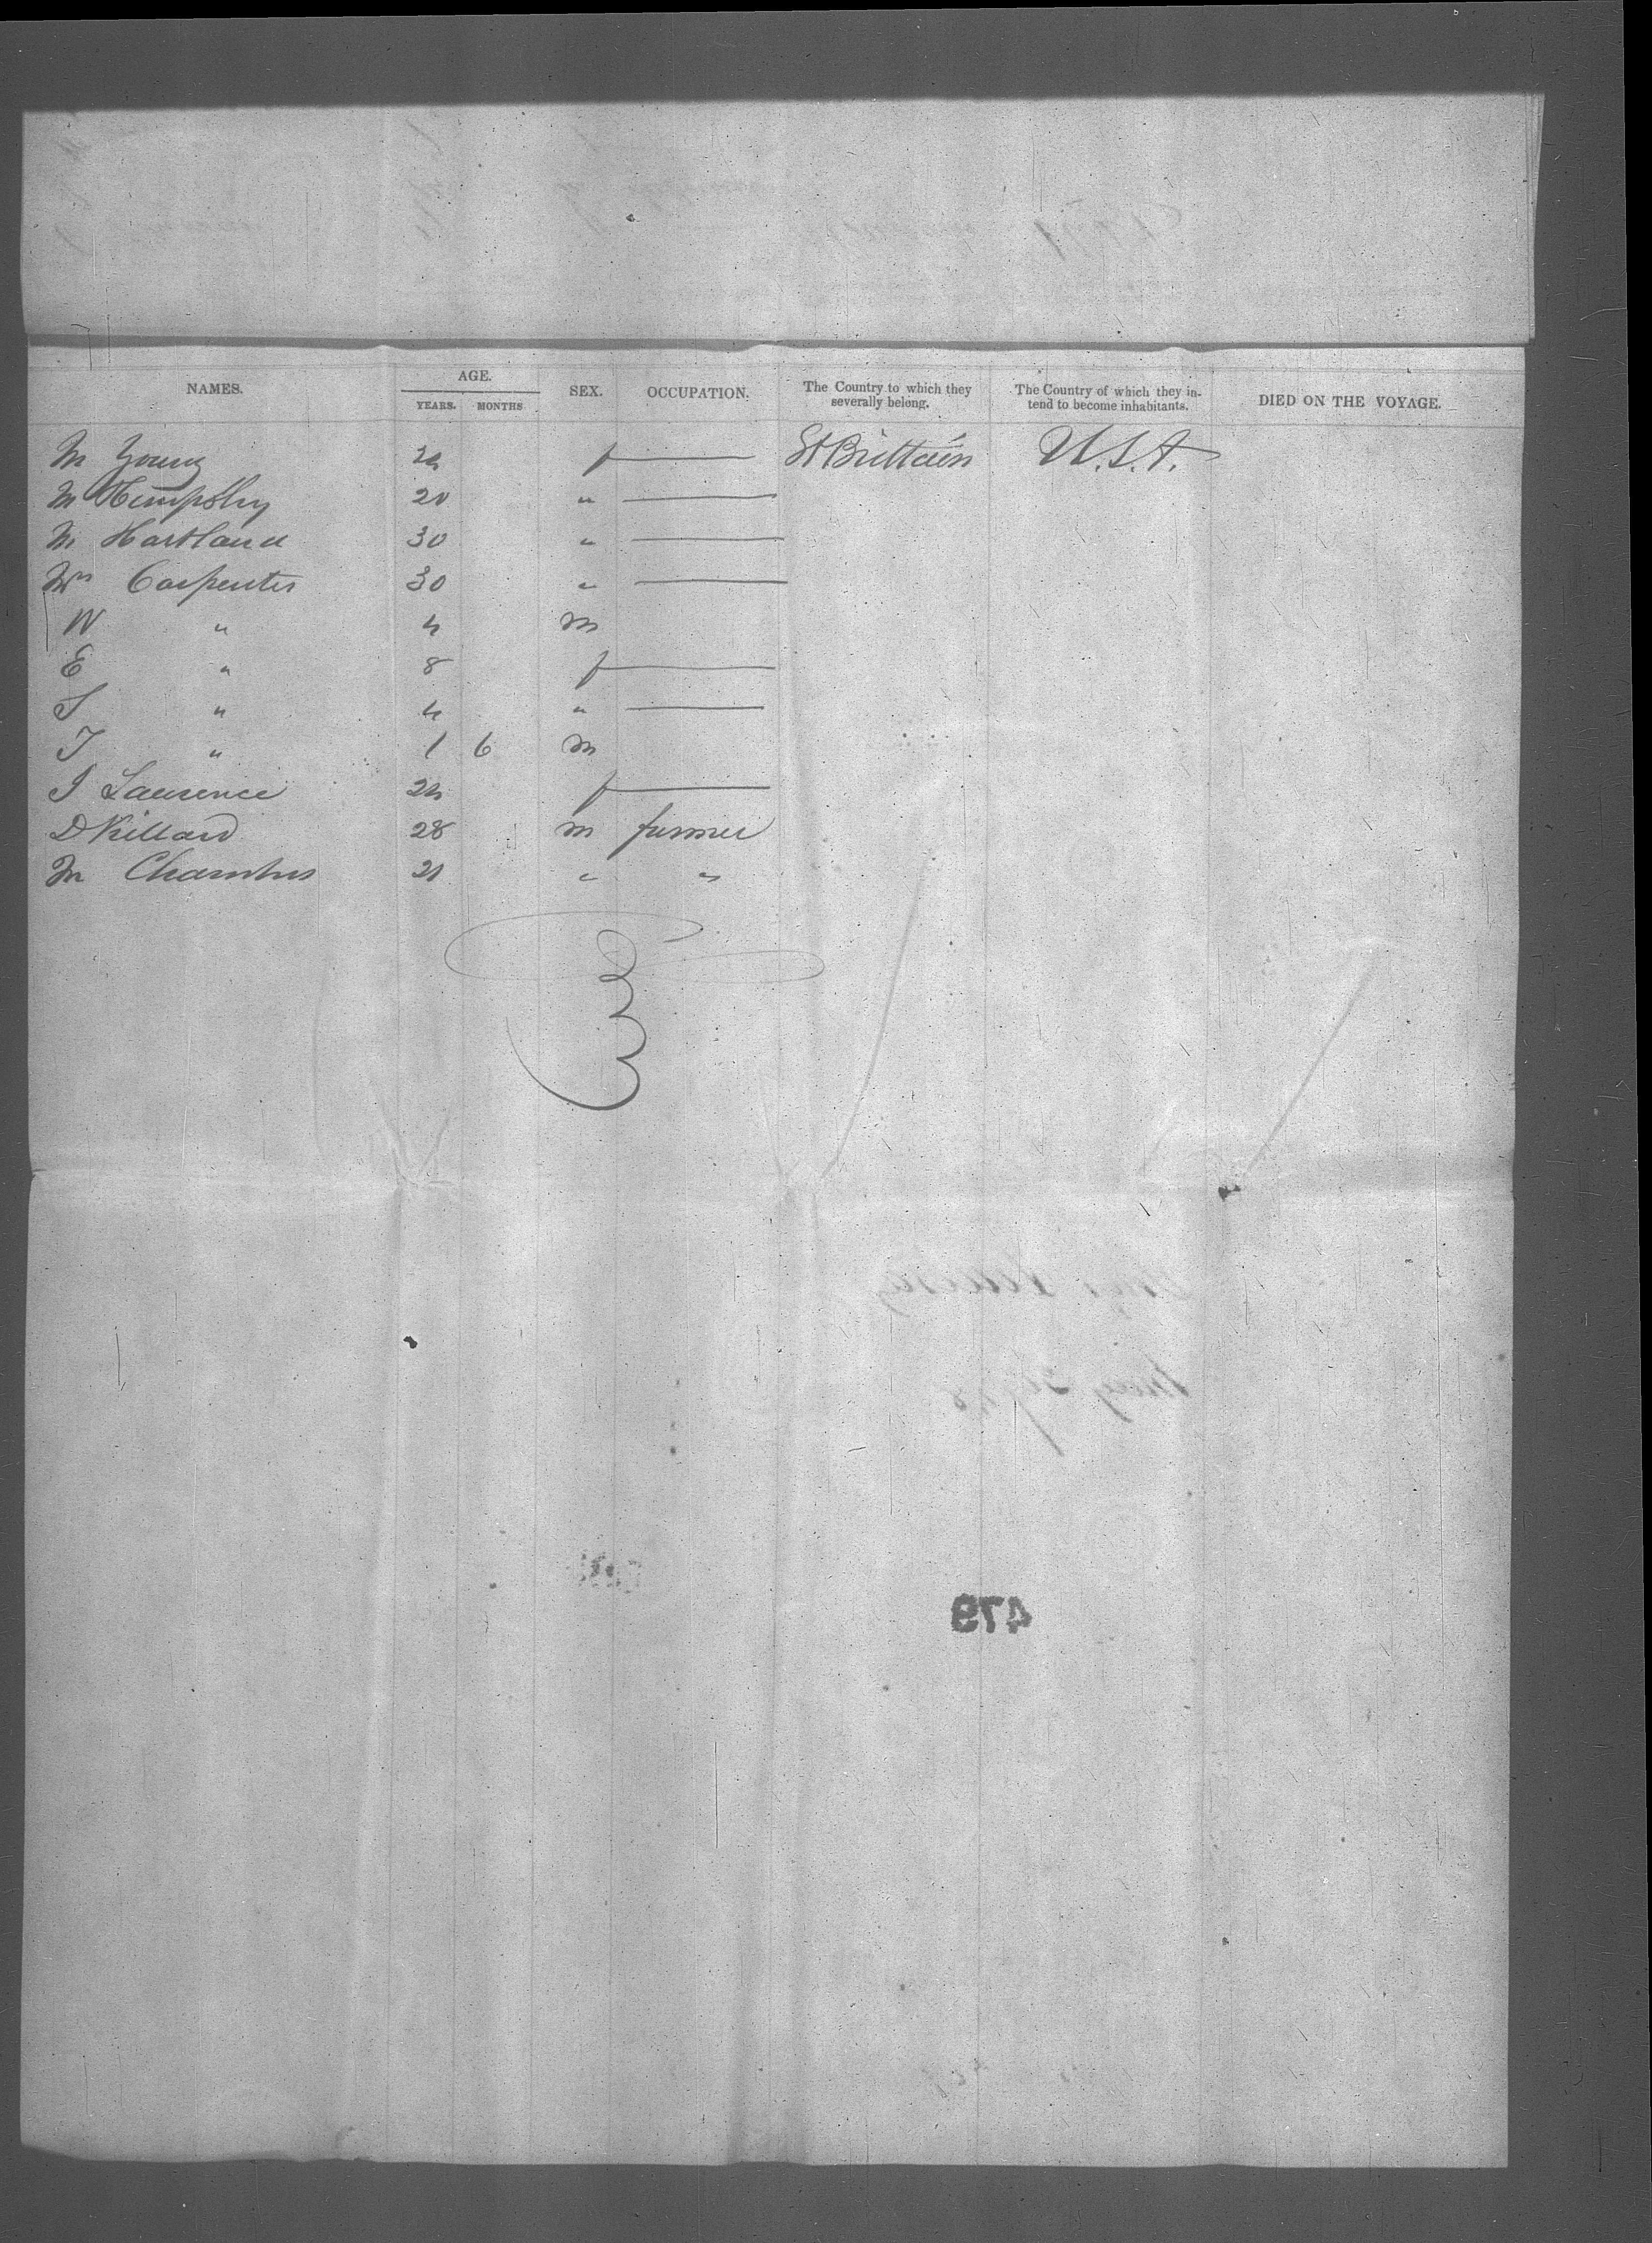 NAMES. AGE. SEX. OCCUPATION. The Country to which they severally belong. The Country of which they intend to become inhabitants. DIED ON THE VOYAGE.
YEARS. MONTHS
M Young 24 f — Gt Brittain U.S.A.
M 20 " —
M Hartland 30 " —
Mrs Carpenter 30 " —
W " 4 m
E " 8 f —
S " 4 " —
T " 1 6 m
J Laurence 24 f —
D Killard 28 m farmer
M Chambers 21 " "
479